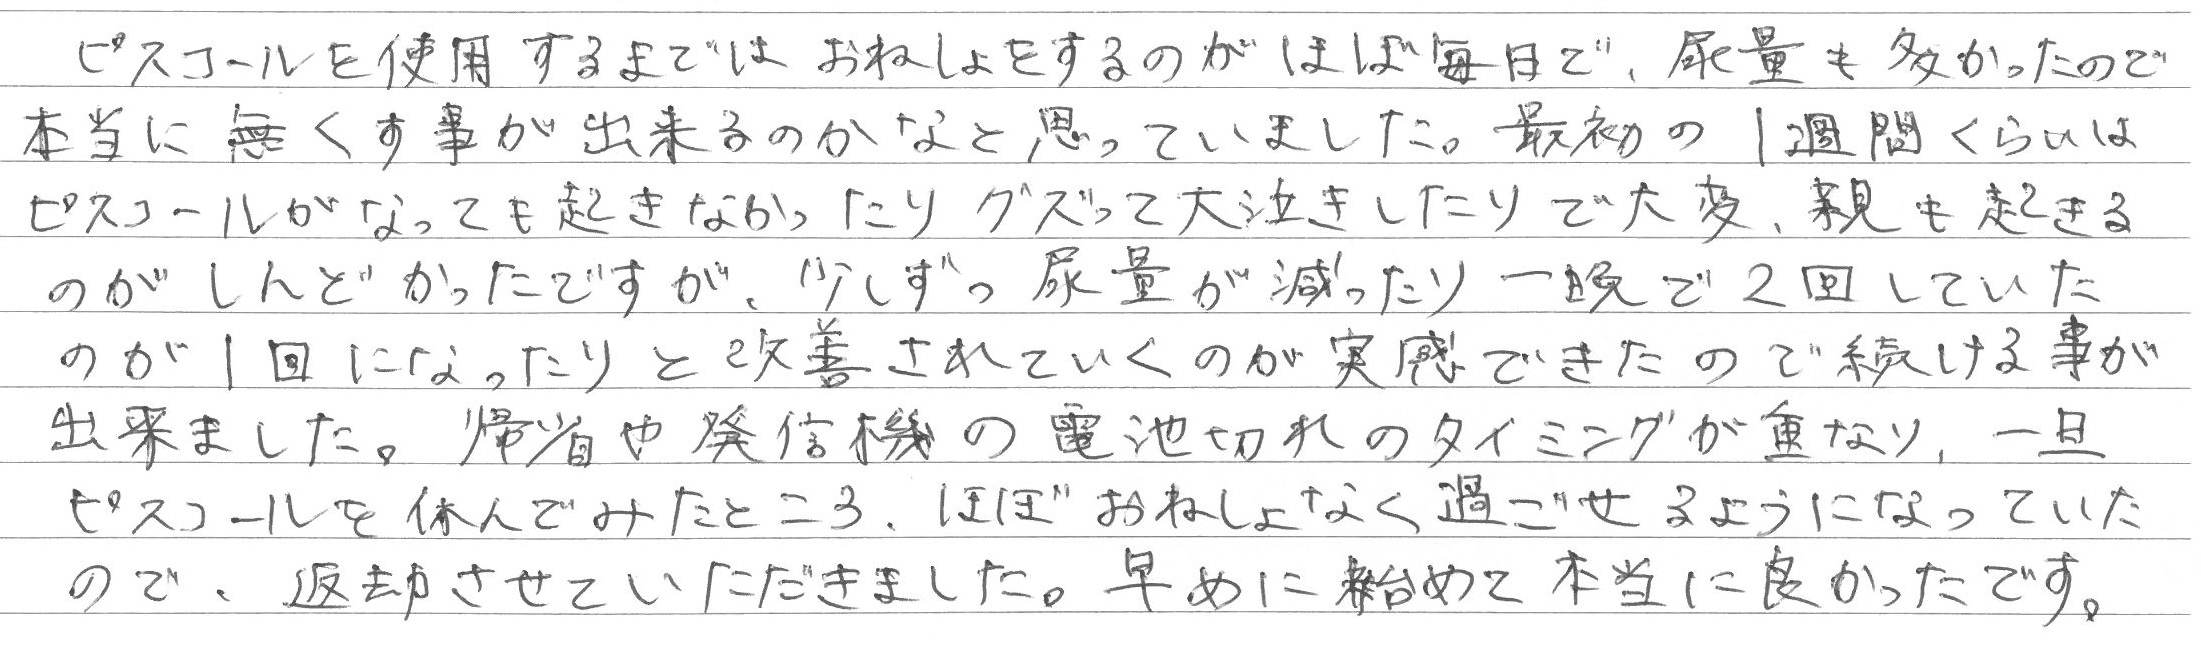 ピスコールを使用するまではおねしょをするのがほぼ毎日で、尿量も多かったので
本当に無くす事が出来るのかなと思っていました。最初の1週間くらいは
ピスコールがなっても起きなかったりグズって大泣きしたりで大変、親も起きる
のがしんどかったですが、少しずつ尿量が減ったり一晩で2回していた
のが1回になったりと改善されていくのが実感できたので続ける事が
出来ました。帰省や発信機の電池切れのタイミングが重なり、一旦
ピスコールを休んでみたところ、ほぼおねしょなく過ごせるようになっていた
ので、返却させていただきました。早めに始めて本当に良かったです。